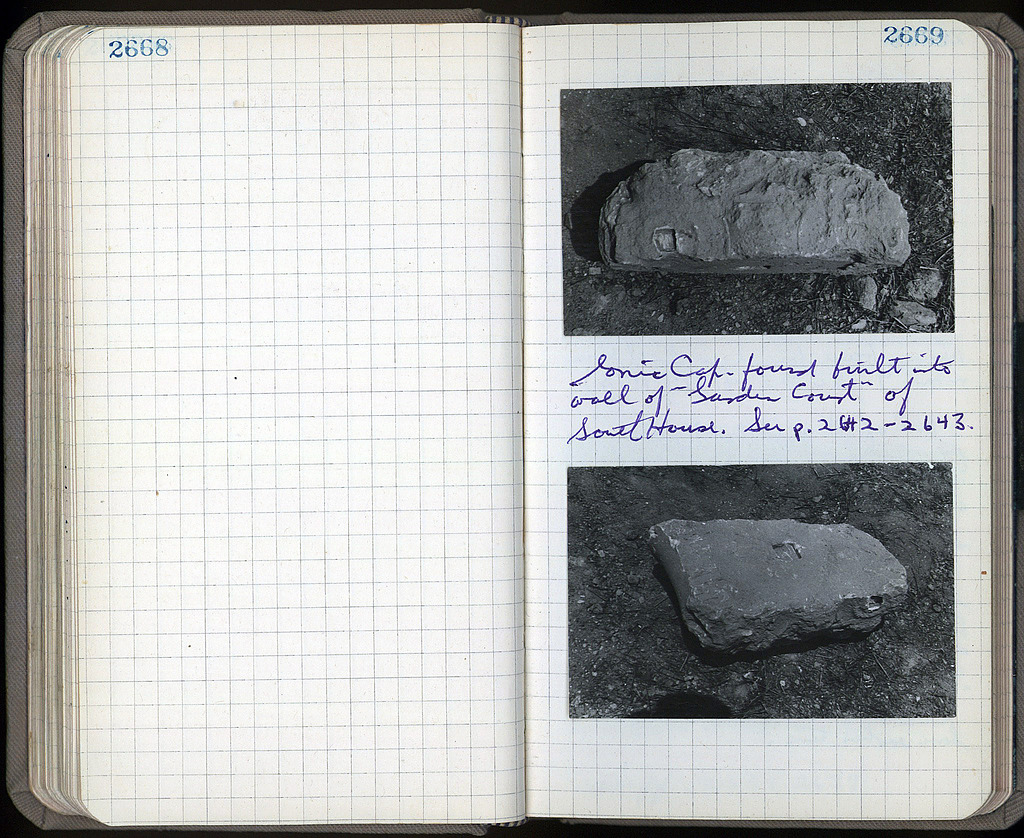 2668
2669
Ionic Cap. found built into
wall of "Garden Court" of
South House. See p. 2642-2643.